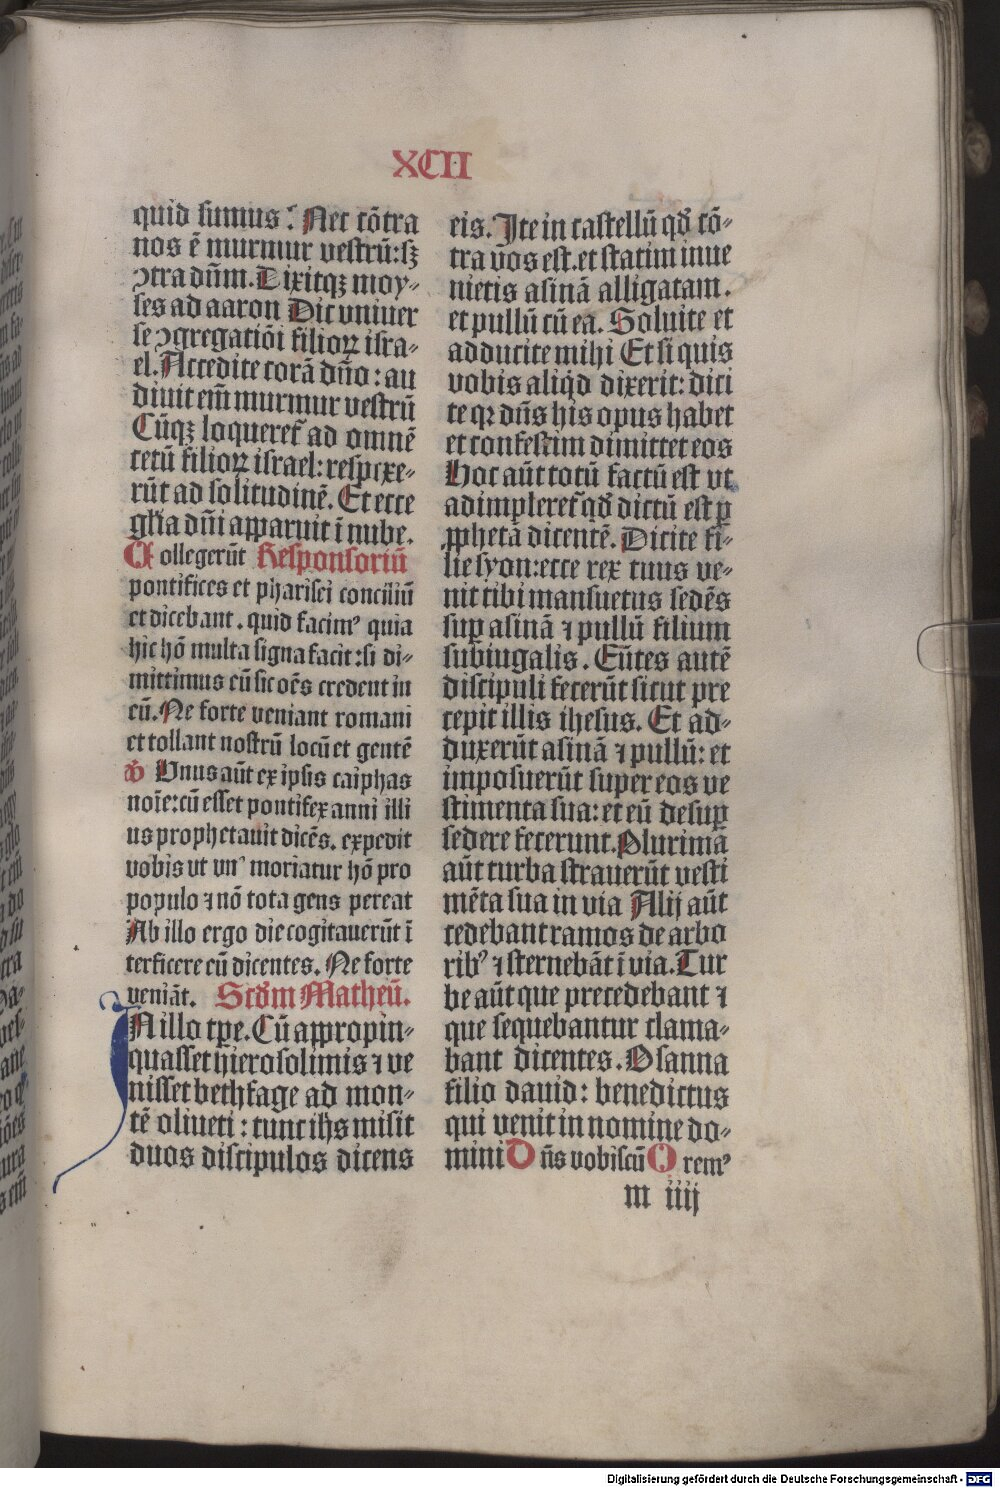 XCII
quid sumus? Nec cōtra
nos ē murmur vestrū: sꝫ
ↄtra dn̄m. Dixitqꝫ moy-
ses ad aaron Dic vniuer
se ↄgregatiōi filioꝝ isra-
el. Accedite corā dn̄o: au
diuit em̄ murmur vestrū
Cūqꝫ loqueret᷑ ad omnē
cetū filioꝝ israel: respexe-
rūt ad solitudinē. Et ecce
gl̄ia dn̄i apparuit ī nube.
Collegerūt Responsoriū
pontifices et pharisei conciliū
et dicebant. quid facimꝰ quia
hic hō multa signa facit: si di-
mittimus eū sic oēs credent in
eū. Ne forte veniant romani
et tollant nostrū locū et gentē
℣ Vnus aūt ex ipsis caiphas
noīe: cū esset pontifex anni illi
us prophetauit dicēs. expedit
vobis vt vnꝰ moriatur hō pro
populo ⁊ nō tota gens pereat
Ab illo ergo die cogitauerūt ī
terficere eū dicentes. Ne forte
veniāt. Scd̄m Matheū.
IN illo tp̄e. Cū appropin-
quasset hierosolimis ⁊ ve
nisset bethfage ad mon-
tē oliueti: tunc ih̄s misit
duos discipulos dicens
eis. Ite in castellū qd̄ cō-
tra vos est. et statim inue
nietis asinā alligatam.
et pullū cū ea. Soluite et
adducite mihi Et si quis
vobis aliqd̄ dixerit: dici
te qꝛ dn̄s his opus habet
et confestim dimittet eos
Hoc aūt totū factū est vt
adimpleret᷑ qd̄ dictū est ꝑ
ꝓphetā dicentē. Dicite fi-
lie syon: ecce rex tuus ve-
nit tibi mansuetus sedēs
suꝑ asinā ⁊ pullū filium
subiugalis. Eūtes autē
discipuli fecerūt sicut pre
cepit illis ihesus. Et ad-
duxerūt asinā ⁊ pullū: et
imposuerūt super eos ve
stimenta sua: et eū desuꝑ
sedere fecerunt. Plurima
aūt turba strauerūt vesti
mēta sua in via Alij aūt
cedebant ramos de arbo
ribꝰ ⁊ sternebāt ī via. Tur
be aūt que precedebant ⁊
que sequebantur clama-
bant dicentes. Osanna
filio dauid: benedictus
qui venit in nomine do-
mini Dn̄s vobiscū Oremꝰ
m iiij
Digitalisierung gefördert durch die Deutsche Forschungsgemeinschaft - DFG